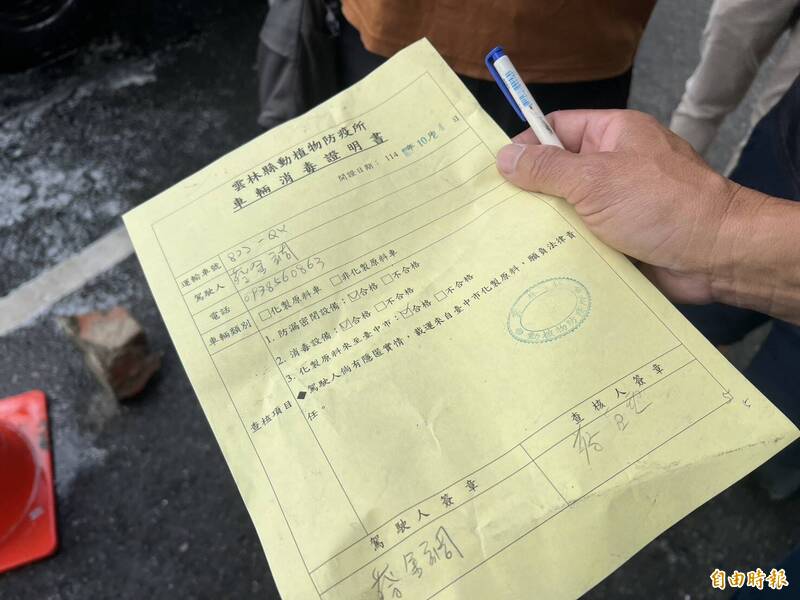 雲林縣動植物防疫所
車輛消毒證明書
開證日期：114年10月 日
運輸車號
駕駛人
電話 0938660863
車輛類別 □化製原料車 □非化製原料車
查核項目
1. 防漏密閉設備：☑合格 □不合格
2. 消毒設備：☑合格 □不合格
3. 化製原料來至臺中市：☑合格 □不合格
◆駕駛人倘有隱匿實情，載運來自臺中市化製原料，願負法律責
任。
駕駛人簽章
查核人簽章
動植物防疫所
自由時報